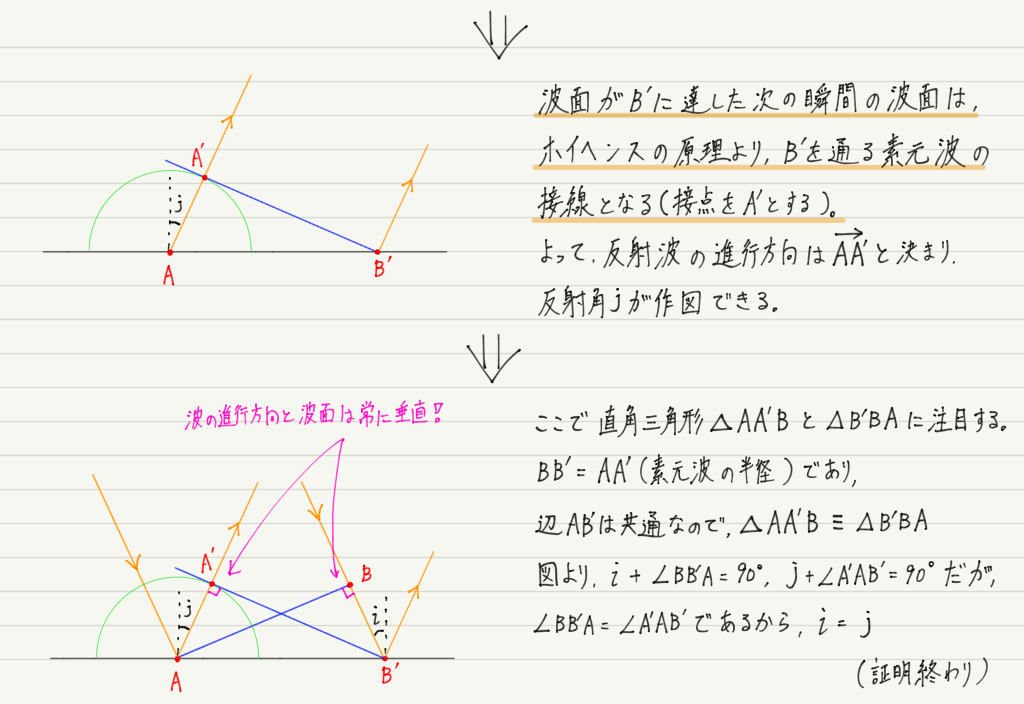 波面がB'に達した次の瞬間の波面は,
ホイヘンスの原理より, B'を通る素元波の
接線となる(接点をA'とする)。
よって, 反射波の進行方向は$\overrightarrow{AA'}$と決まり,
反射角jが作図できる。
A'
j
A
B'
波の進行方向と波面は常に垂直!
ここで直角三角形△AA'Bと△B'BAに注目する。
BB'=AA'(素元波の半径)であり,
辺AB'は共通なので, △AA'B≡△B'BA
図より, i+∠BB'A=90°, j+∠A'AB'=90°だが,
∠BB'A=∠A'AB'であるから, i=j
(証明終わり)
A'
B
j
i
A
B'